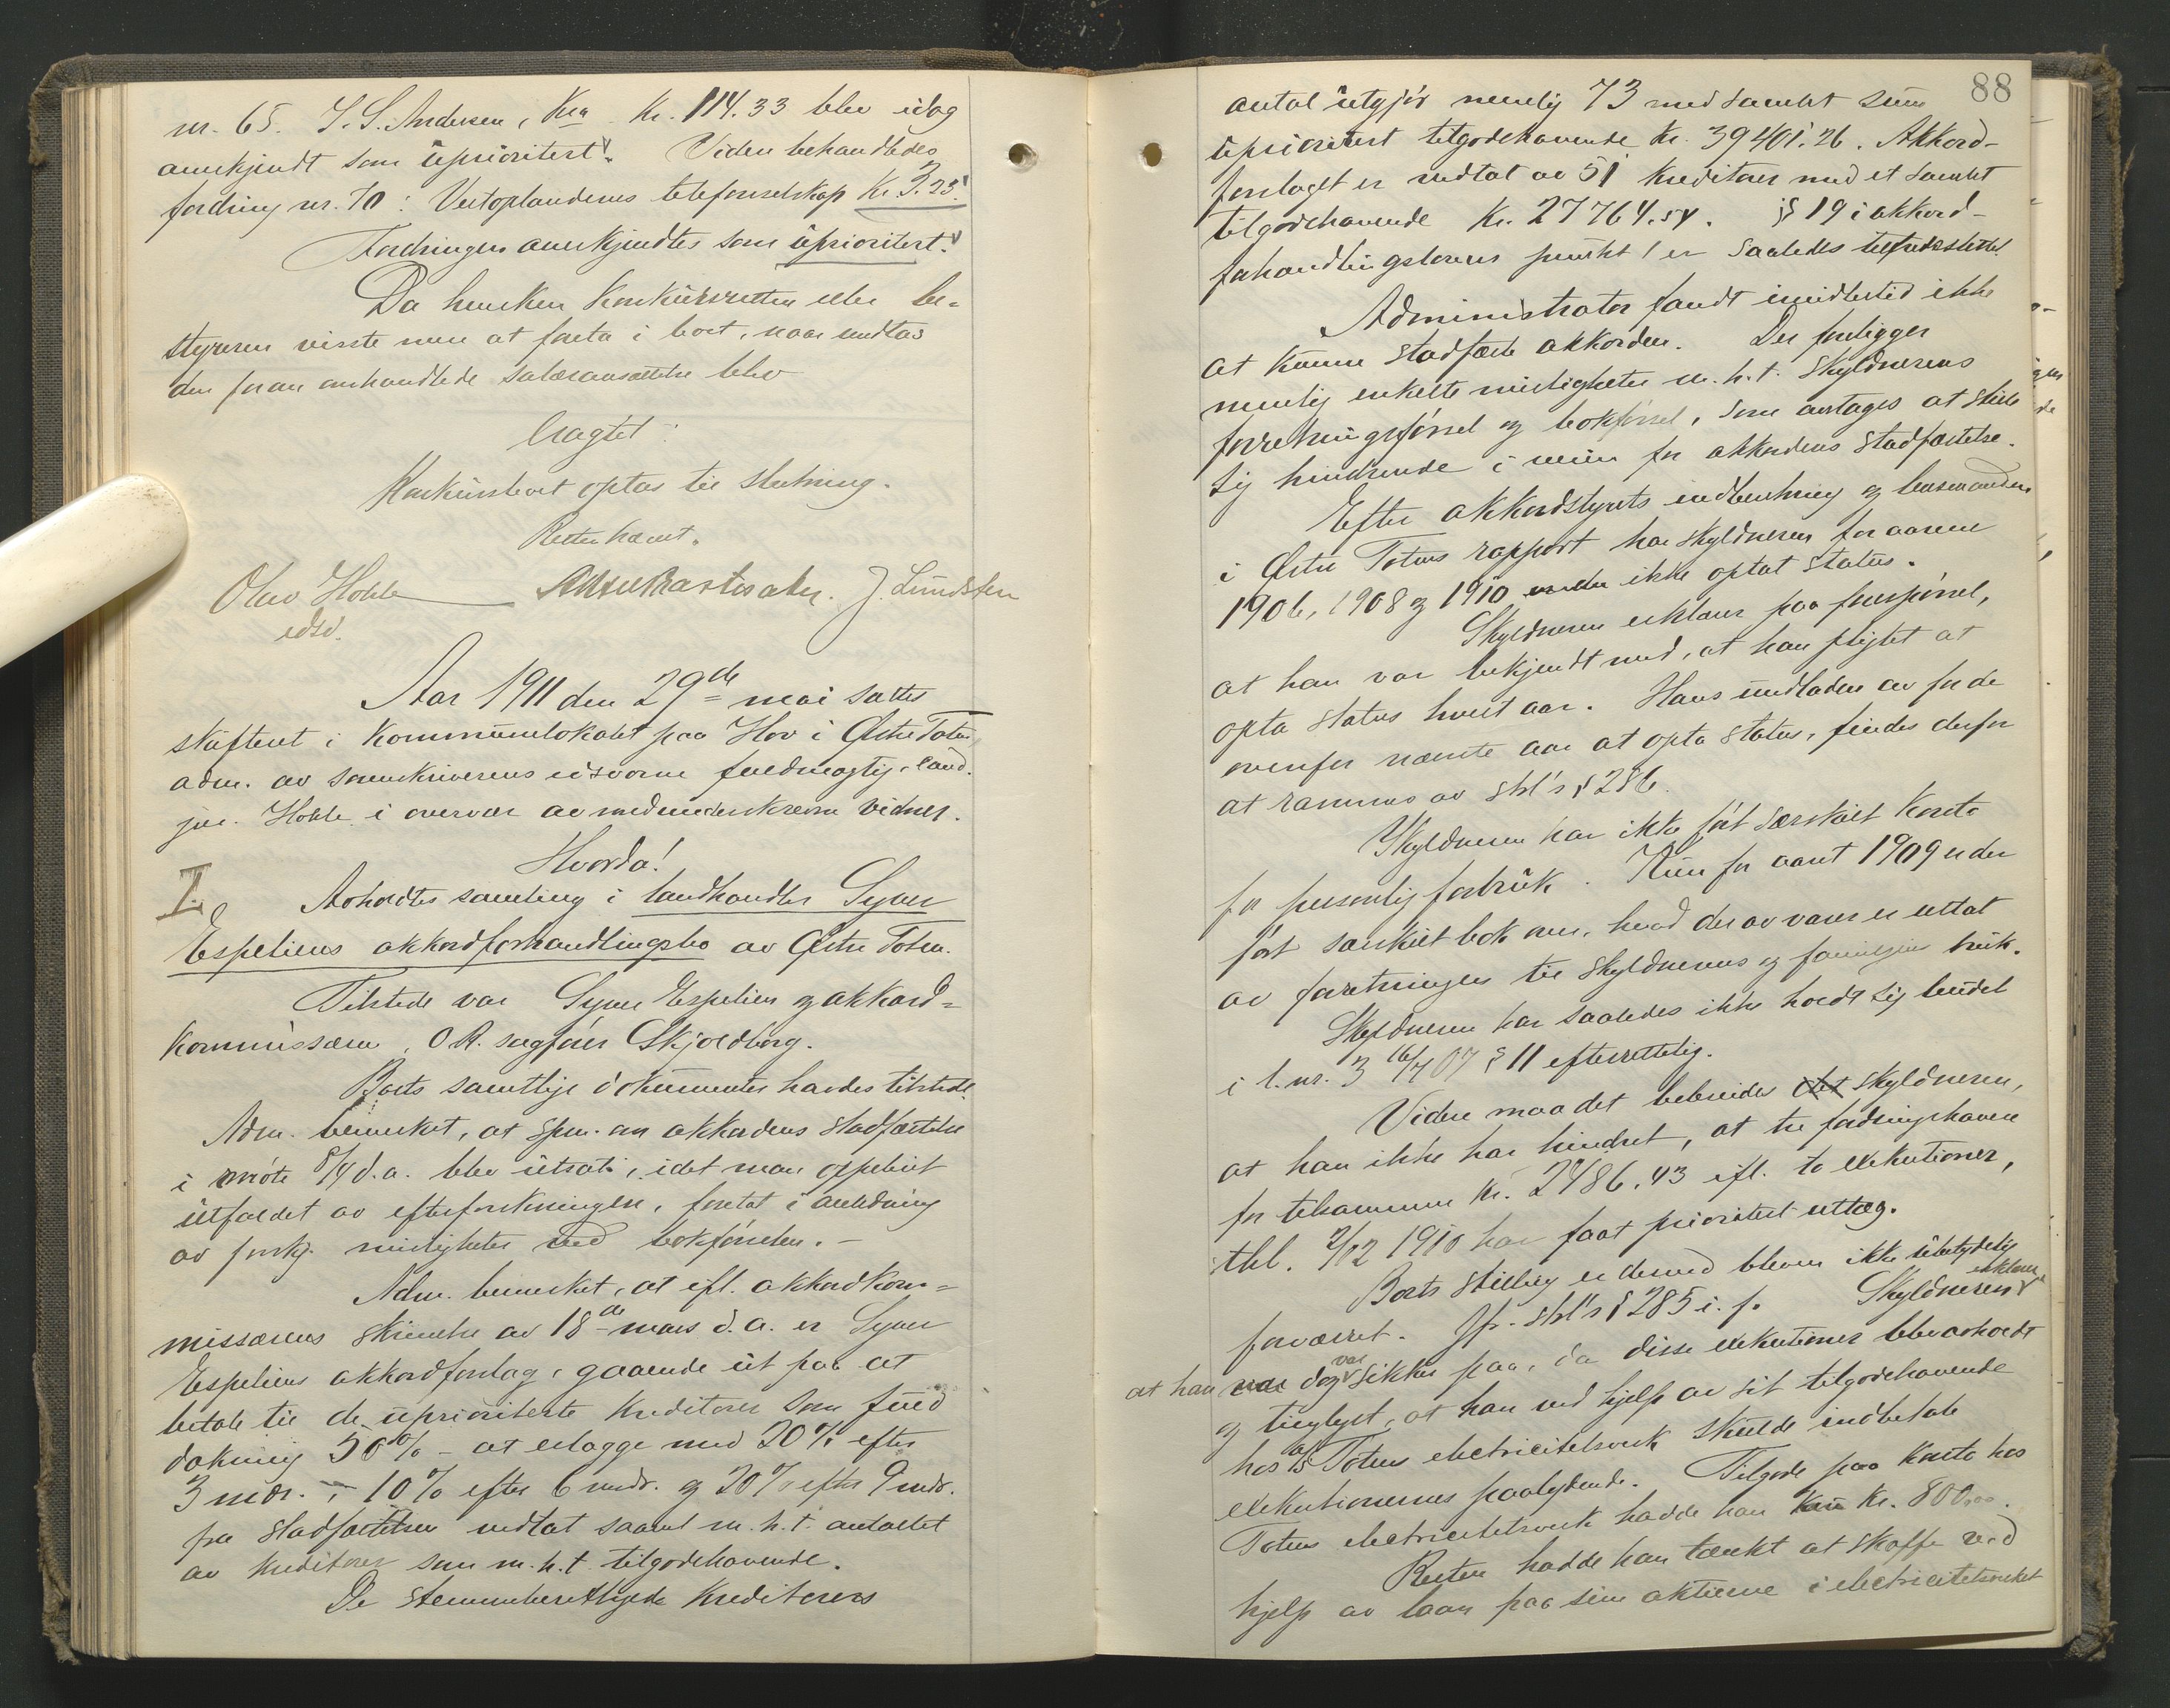 nr. 65. J. S. Andersen, Kra Kr. 114.33 blev idag
anerkjendt som uprioritert. Viden behandledes
fordring nr. 70: Vestoplandenes telefonselskap Kr. 3.25.
Fordringen anerkjendtes som uprioritert.
Da hverken konkursretten eller be-
styreren visste mere at foreta i boet, naar undtas
den foran omhandlede salæransættelse blev
bragtet:
Konkursboet optas til slutning.
Retten hævet.
Olav Hohle J. Lundsten
edsv.
Aar 1911 den 29de mai sattes
skifteret i kommunelokalet paa Hov i Østre Toten,
adm. av sorenskriverens edsvorne fuldmægtig, cand.
jur. Hohle i overvær av medunderskrevne vidner.
Hvorda!
I. Avholdtes samling i landhandler Syver
Espeliens akkordforhandlingsbo av Østre Toten.
Tilstede var Syver Espelien og akkord-
kommissæren, O.R. sagfører Skjoldborg.
Boets samtlige dokumenter havdes tilstede.
Adm. bemerket, at spm. om akkordens stadfæstelse
i møte 8/4 d.a. blev utsat, idet man oppebiet
utfaldet av efterforskningen, foretat i anledning
av forskj. misligheter ved bokførselen. –
Adm. bemerket, at ifl. akkordkom-
missærens skrivelse av 18de mars d.a. er Syver
Espeliens akkordforslag, gaaende ut paa at
betale til de uprioriterte kreditorer som fuld
dækning 50% – at erlægge med 20% efter
3 mdr. – 10% efter 6 mdr. og 20% efter 9 mdr.
fra stadfæstelsen vedtat saavel m.h.t. antallet
av kreditorer som m.h.t. tilgodehavende.
De stemmeberettigede kreditorers
88
antal utgjør nemlig 73 med samlet sum
uprioritert tilgodehavende kr. 39401.26. Akkord-
forslaget er vedtat av 51 kreditorer med et samlet
tilgodehavende kr. 27764.54. § 19 i akkord-
forhandlingslovens punkt 1 er saaledes tilfredsstillet.
Administrator fandt imidlertid ikke
at kunne stadfæste akkorden. Der foreligger
nemlig enkelte misligheter m.h.t. skyldnerens
forretningsførsel og bokførsel, som antages at stille
sig hindrende i veien for akkordens stadfæstelse.
Efter akkordstyrets indberetning og lensmanden
i Østre Totens rapport har skyldneren for aarene
1906, 1908 og 1910 ikke optat status.
Skyldneren erklærer paa forespørsel,
at han var bekjendt med, at han pligtet at
opta status hvert aar. Hans undladen av for de
ovenfor nævnte aar at opta status, findes derfor
at rammes av strl's § 286.
Skyldneren har ikke ført særskilt konto
for personlig forbruk. Kun for aaret 1909 er der
ført særskilt bok over, hvad der av varer er uttat
av forretningen til skyldnerens og familiens bruk.
Skyldneren har saaledes ikke holdt sig budet
i l. nr. 3 16/7 07 § 11 efterrettelig.
Videre maa det bebreides skyldneren,
at han ikke har hindret, at to fordringshavere
for tilsammen kr. 2486.43 ifl. to exekutioner,
thl. 2/12 1910 har faat prioritert utlæg.
Boets stilling er derved bleven ikke ubetydelig
forværret. Jfr. strl's § 285 i.f. Skyldneren erklærer
at han dog var sikker paa, da disse exekutioner blev avholdt
og tinglyst, at han ved hjelp av sit tilgodehavende
hos a/s Totens electricitetsverk skulde indbetale
exekutionernes paalydende. Tilgode paa konto hos
Totens electricitetsverk hadde han kun kr. 800.00.
Resten hadde han tænkt at skaffe ved
hjelp av laan paa sine aktierne i electricitetsverket